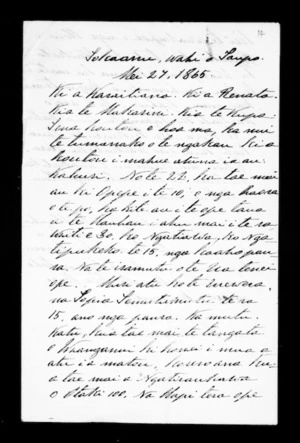 Tokaanu, wahi o Taupo.
Mei 27, 1865.
Ki a Karaitiana. Ki a Renata.
Kia te Hukarini Kia te Kupa:
Tena koutou e hoa ma, ka nui
te tumanako o te ngakau ki a
koutou i mahue atu na i a au.
No te 22, ka tae mai
au ki Opepe i te 10, o nga haora
o te po, ko kite au i te ope taua
a te Rauhau i atu mai i te ra
whiti e 30, ko Ngatiawa, ko Nga
tipukeko. te 15, nga kaaho pau
ra. Na te iramutu o te Wa tenei
ope. Muri atu ko te Urewera,
na Topia te ra
15, ano nga paura. Ka mutu.
Katu, kua tae mai te tangata
o Whanganui ki konei i mua a
atu i a matou. Kua
tae mai a Ngatiraukawa
o Otaki 100, Na Hapi tera ope